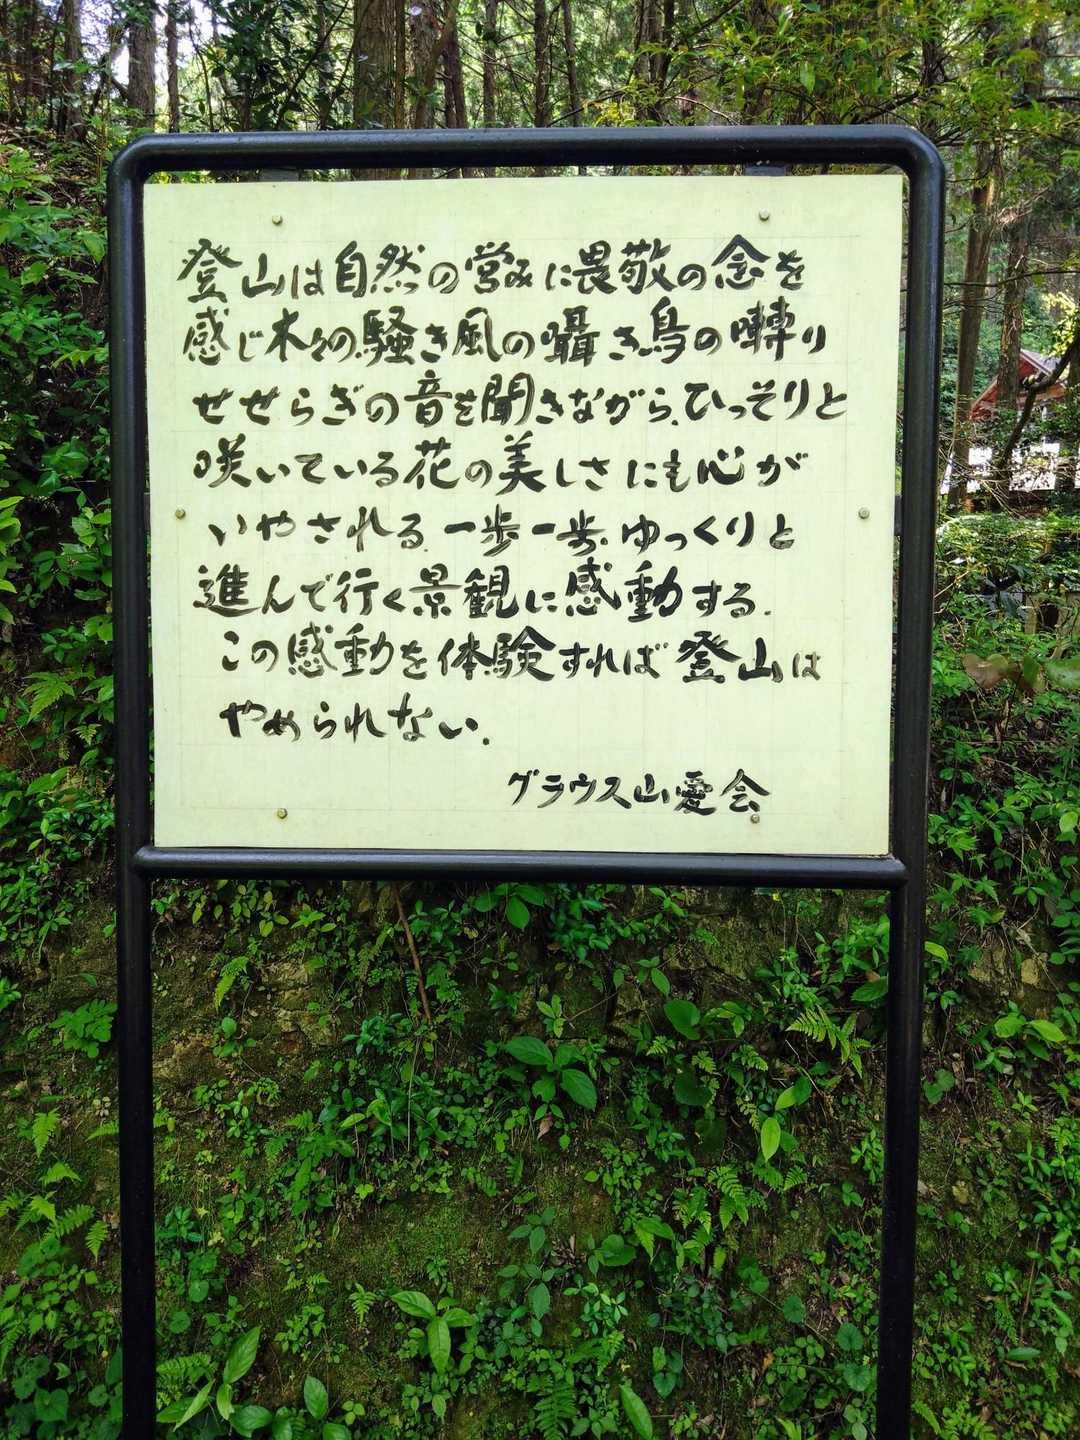 登山は自然の営みに畏敬の念を
感じ木々の騒き風の囁き鳥の囀り
せせらぎの音を聞きながら、ひっそりと
咲いている花の美しさにも心が
いやされる。一歩一歩、ゆっくりと
進んで行く景観に感動する。
この感動を体験すれば登山は
やめられない。
グラウス山愛会